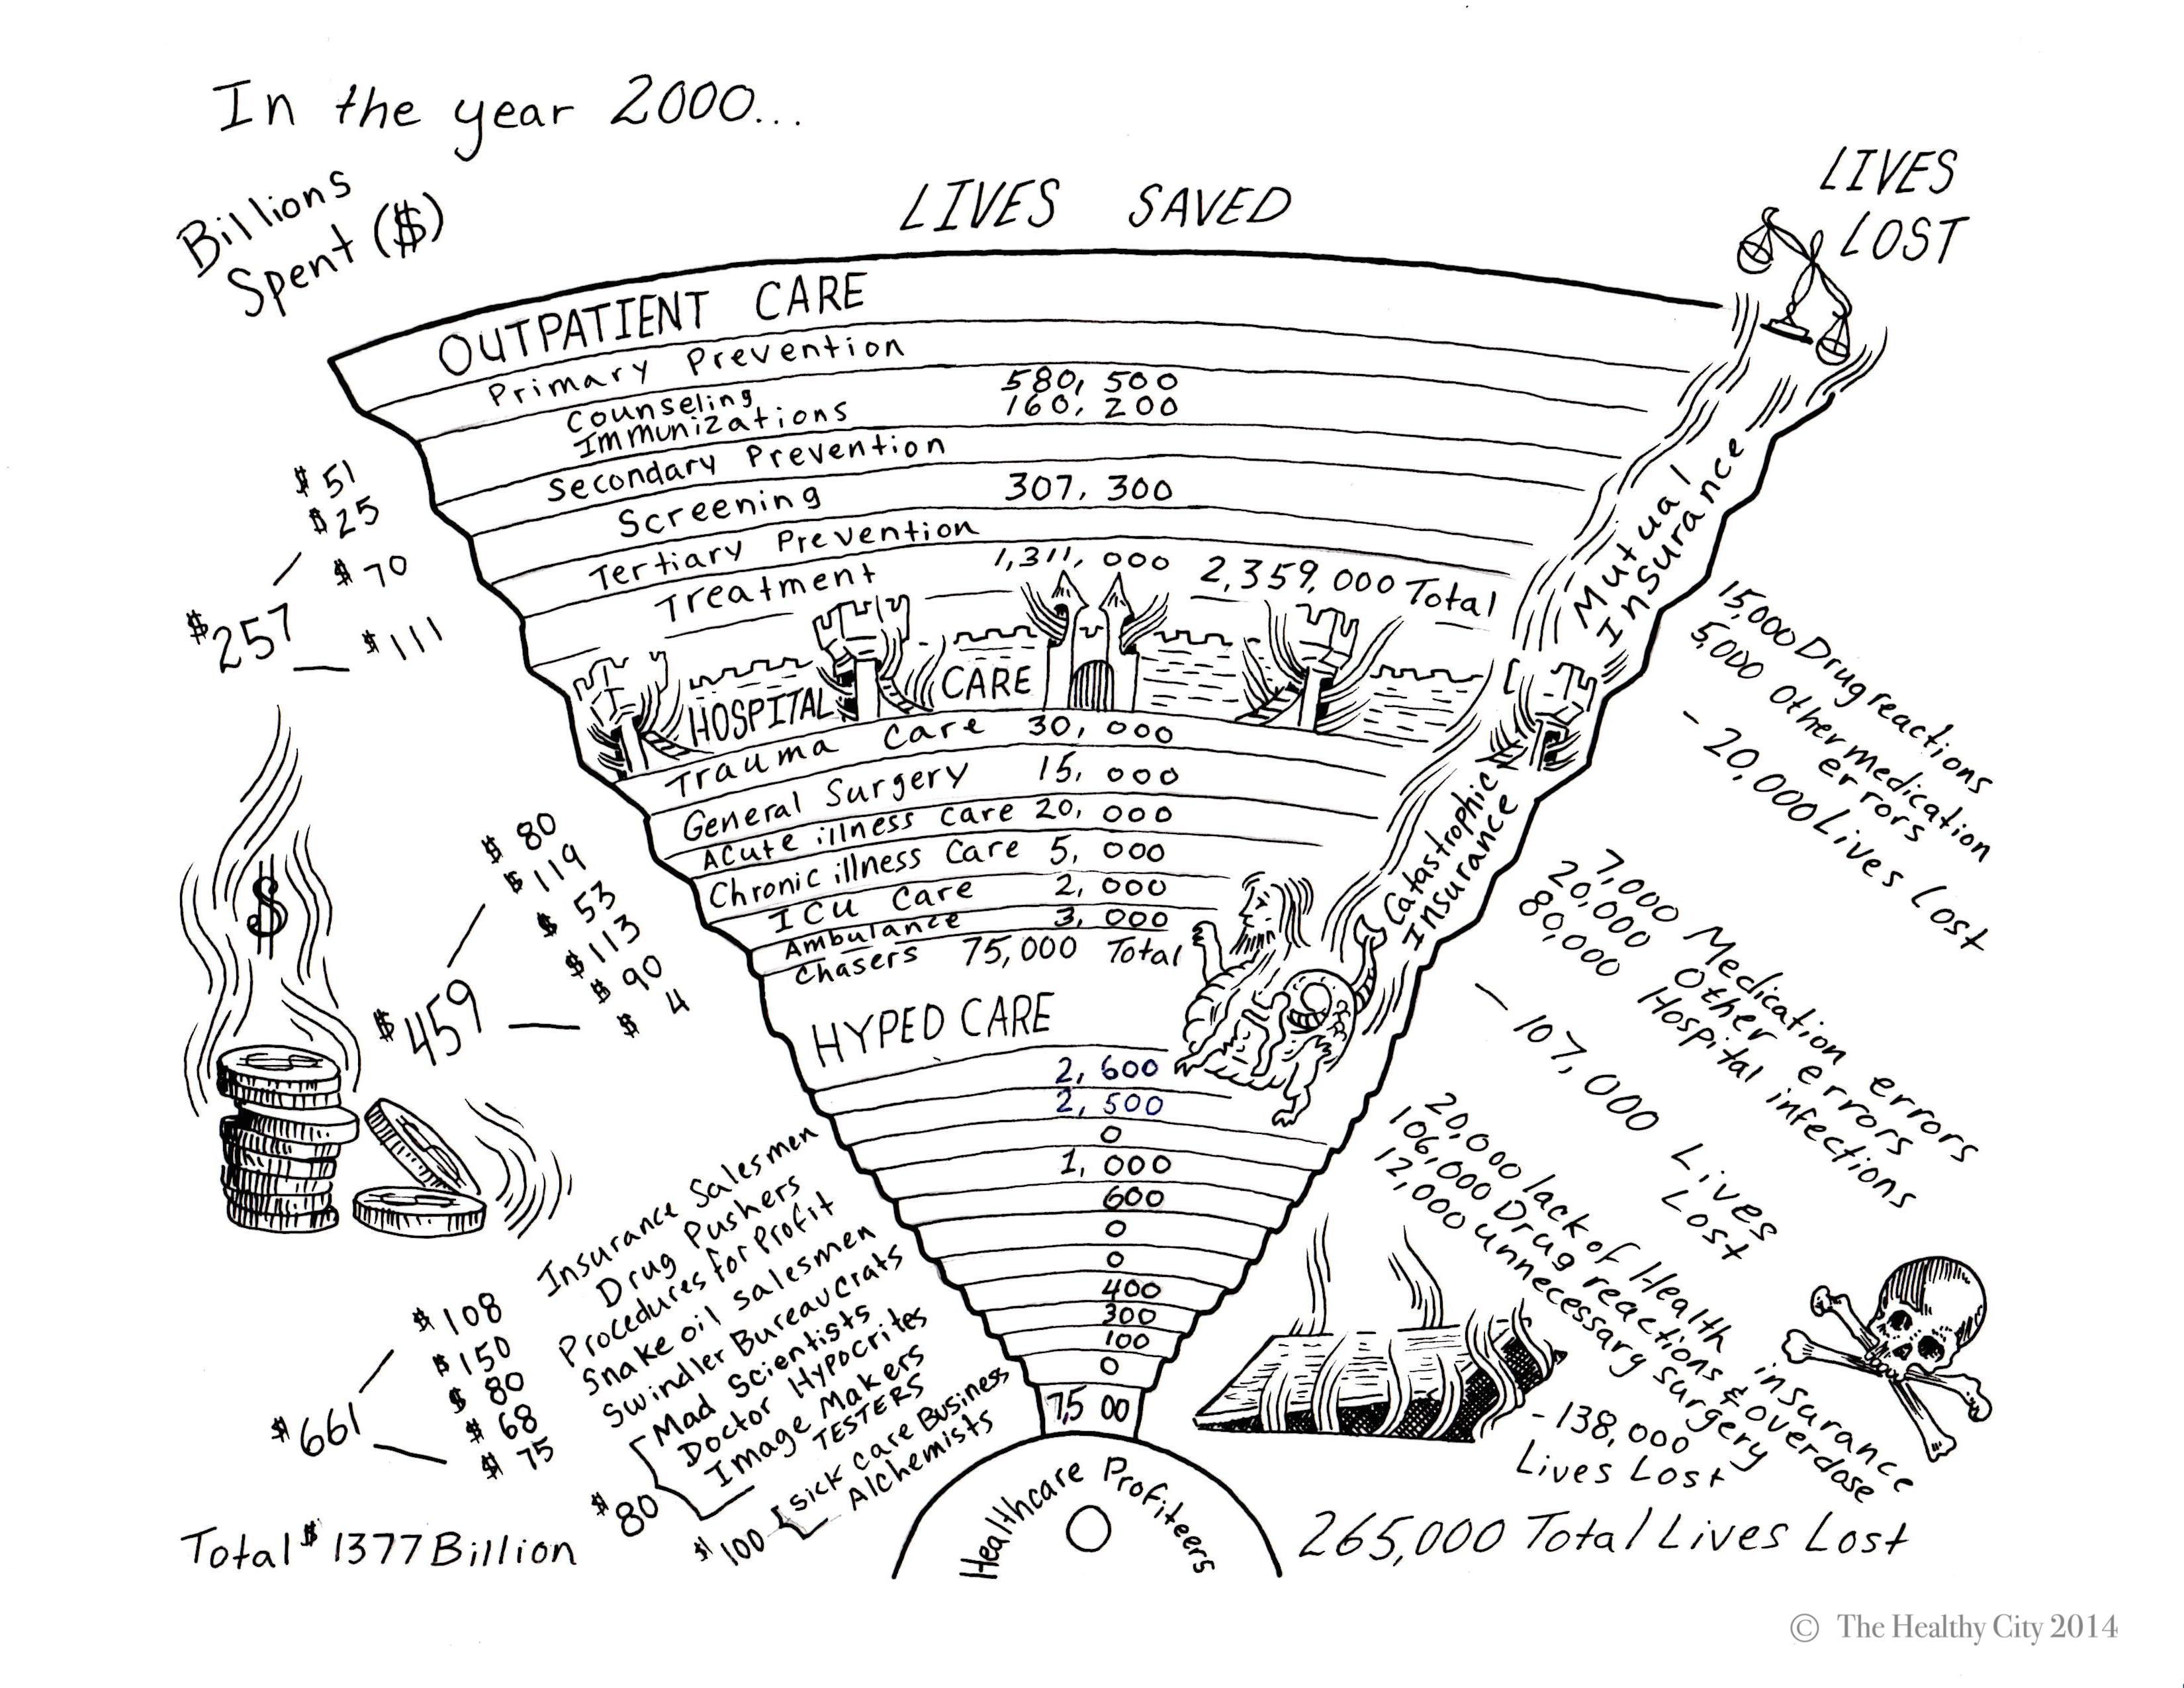 In the year 2000...
Billions
Spent ($)
LIVES SAVED
LIVES
LOST
OUTPATIENT CARE
Primary Prevention
Counseling 580,500
Immunizations 160,200
Secondary Prevention
Screening 307,300
Tertiary Prevention
Treatment 1,311,000 2,359,000 Total
$51
$25
$70
$257
$111
Mutual
Insurance
15,000 Drug reactions
5,000 Other medication
errors
- 20,000 Lives Lost
HOSPITAL CARE
Trauma Care 30,000
General Surgery 15,000
Acute illness Care 20,000
Chronic illness Care 5,000
ICU Care 2,000
Ambulance 3,000
Chasers 75,000 Total
$80
$119
$53
$113
$90
$4
$459
$
Catastrophic
Insurance
7,000 Medication errors
20,000 Other errors
80,000 Hospital infections
- 107,000 Lives
Lost
HYPED CARE
2,600
2,500
0
1,000
600
0
0
400
300
100
0
7,500
Insurance Salesmen
Drug Pushers
Procedures for Profit
Snake oil salesmen
Swindler BureauCrats
Mad Scientists
Doctor Hypocrites
Image Makers
TESTERS
Sick Care Business
Alchemists
$108
$150
$80
$68
$75
$661
$80
$100
Total $1377 Billion
20,000 lack of Health insurance
106,000 Drug reactions & overdose
12,000 unnecessary surgery
-138,000
Lives Lost
Healthcare Profiteers
265,000 Total Lives Lost
© The Healthy City 2014